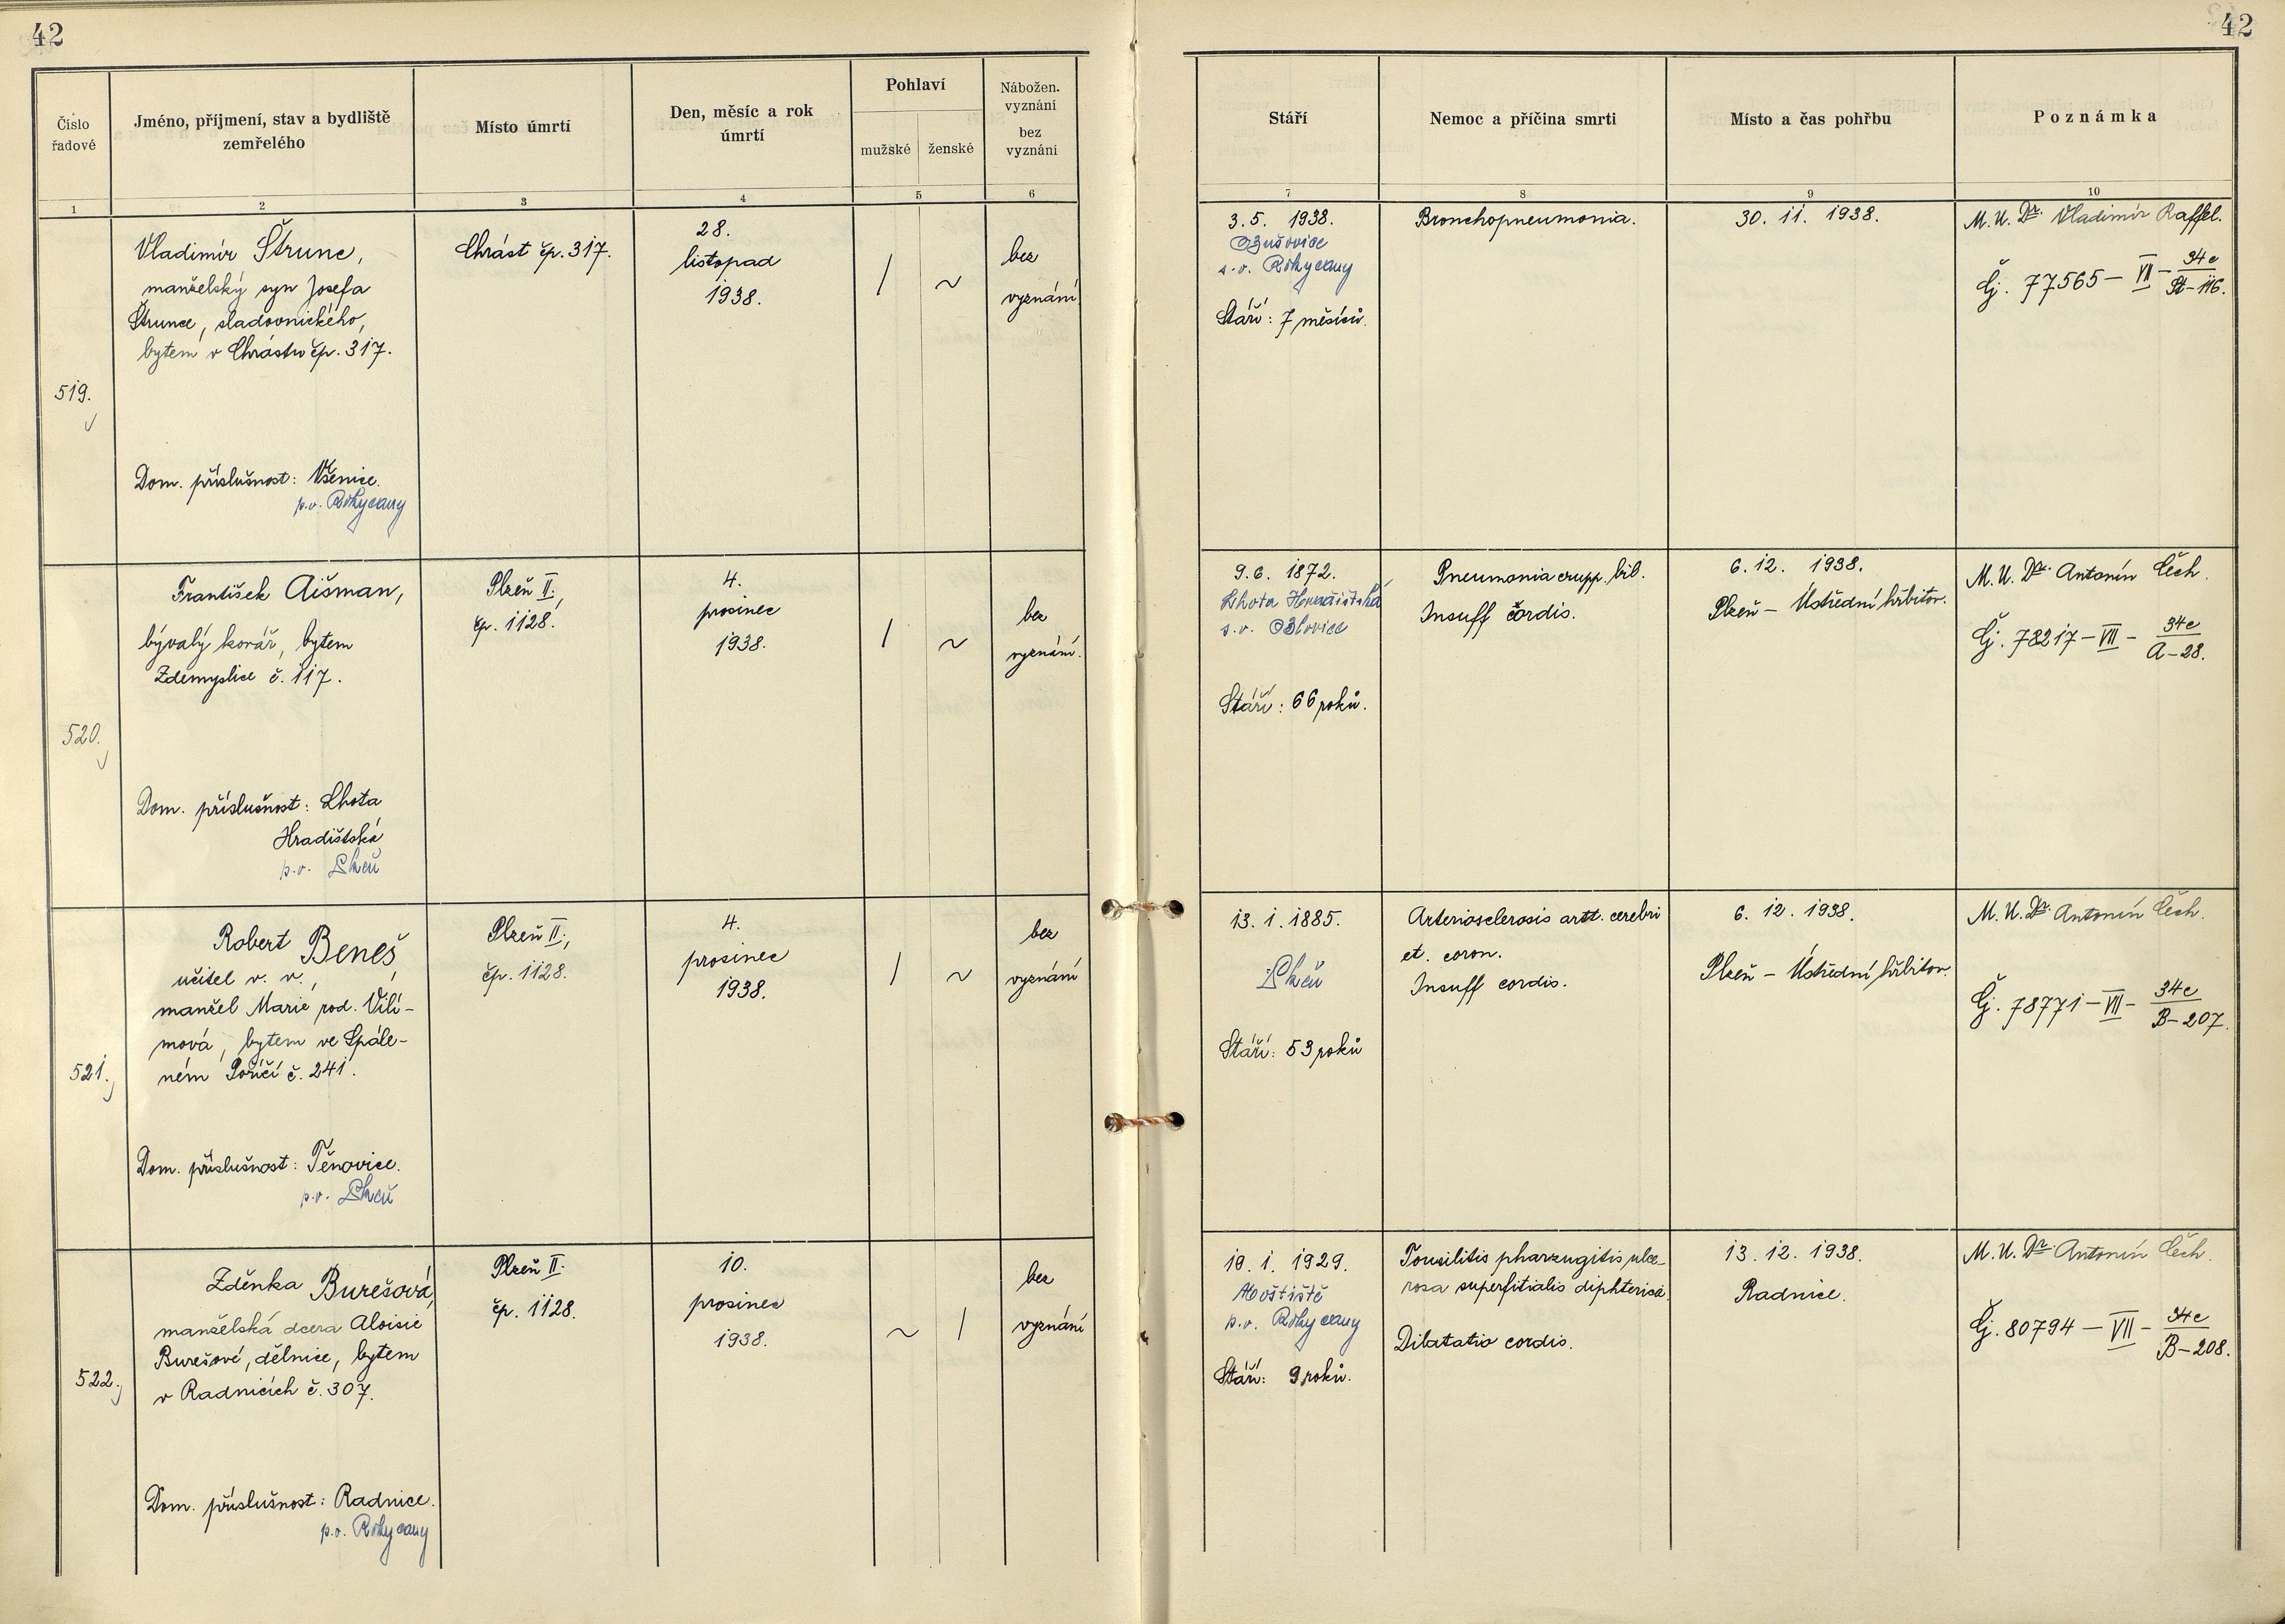 42
42
Číslo
řadové
Jméno, příjmení, stav a bydliště
zemřelého
Místo úmrtí
Den, měsíc a rok
úmrtí
Pohlaví
mužské
ženské
Nábožen.
vyznání
bez
vyznání
Stáří
Nemoc a příčina smrti
Místo a čas pohřbu
Poznámka
1
2
3
4
5
6
7
8
9
10
519.
Vladimír Štrunc,
manželský syn Josefa
Štrunce, sladovnického,
bytem v Chrástu čp. 317.
Dom. příslušnost: Všenice.
p.o. Rokycany
Chrást čp. 317.
28.
listopad
1938.
bez
vyznání.
3. 5. 1938.
s.o. Rokycany
Stáří: 7 měsíců.
Bronchopneumonia.
30. 11. 1938.
M. U. Dr. Vladimír Raffel.
Čj. 77565 – VII – 34c
St – 116.
520.
František Aišman,
bývalý kovář, bytem
Zdemyslice č. 117.
Dom. příslušnost: Lhota
Hradištská
p.o. Plzeň
Plzeň II.,
čp. 1128.
4.
prosinec
1938.
bez
vyznání.
9. 6. 1872.
Lhota Hradištská
s.o. Blovice
Stáří: 66 roků.
Pneumonia crupp. bil.
Insuff cordis.
6. 12. 1938.
Plzeň – Ústřední hřbitov.
M. U. Dr. Antonín Čech.
Čj. 78217 – VII – 34c
A – 28.
521.
Robert Beneš
učitel v. v.,
manžel Marie rod. Vilí-
mová, bytem ve Spále-
ném Poříčí č. 241.
Dom. příslušnost: Těnovice.
p.o. Plzeň
Plzeň II.,
čp. 1128.
4.
prosinec
1938.
bez
vyznání
13. 1. 1885.
Plzeň
Stáří: 53 roků
Arteriosclerosis artt. cerebri
et. coron.
Insuff cordis.
6. 12. 1938.
Plzeň – Ústřední hřbitov.
M. U. Dr. Antonín Čech.
Čj. 78771 – VII – 34c
B – 207.
522.
Zděnka Burešová,
manželská dcera Aloisie
Burešové, dělnice, bytem
v Radnicích č. 307.
Dom. příslušnost: Radnice.
p.o. Rokycany
Plzeň II.
čp. 1128.
10.
prosinec
1938.
bez
vyznání
19. 1. 1929.
p.o. Rokycany
Stáří: 9 roků.
Tonsilitis pharzugitis ulce-
rosa superfitialis diphterica.
Dilatatio cordis.
13. 12. 1938.
Radnice.
M. U. Dr. Antonín Čech.
Čj. 80794 – VII – 34c
B – 208.